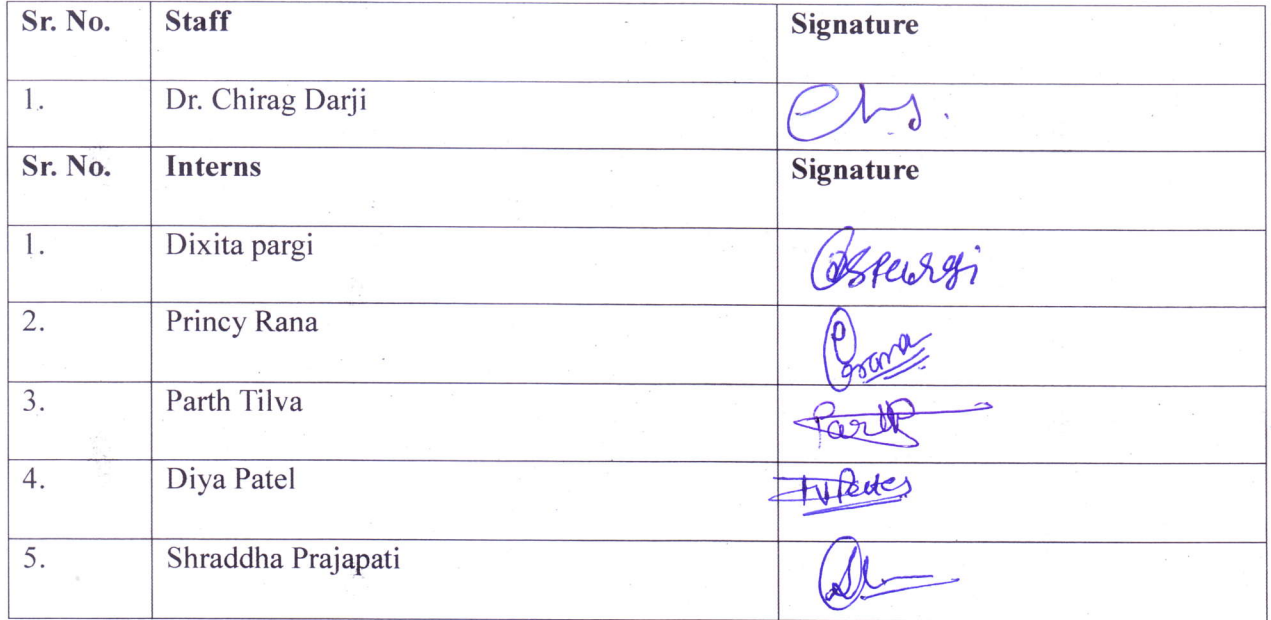 Sr. No. Staff Signature
1. Dr. Chirag Darji
Sr. No. Interns Signature
1. Dixita pargi
2. Princy Rana
3. Parth Tilva Parth
4. Diya Patel
5. Shraddha Prajapati